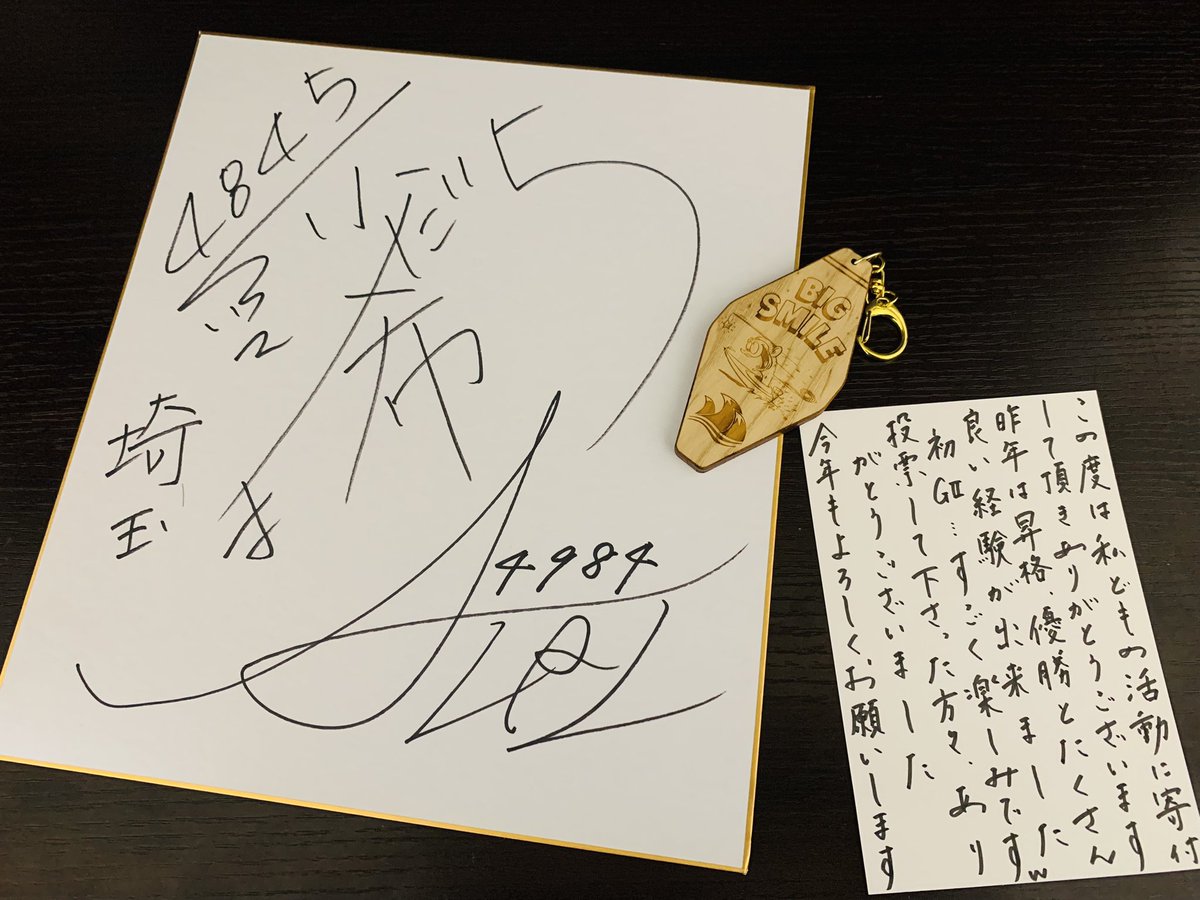 4845
埼玉
4984
BIG
SMILE
この度は私どもの活動に寄付
して頂きありがとうございます
昨年は昇格、優勝とたくさん
良い経験が出来ましたw
初GⅡ…すごく楽しみです
投票して下さった方々、あり
がとうございました
今年もよろしくお願いします